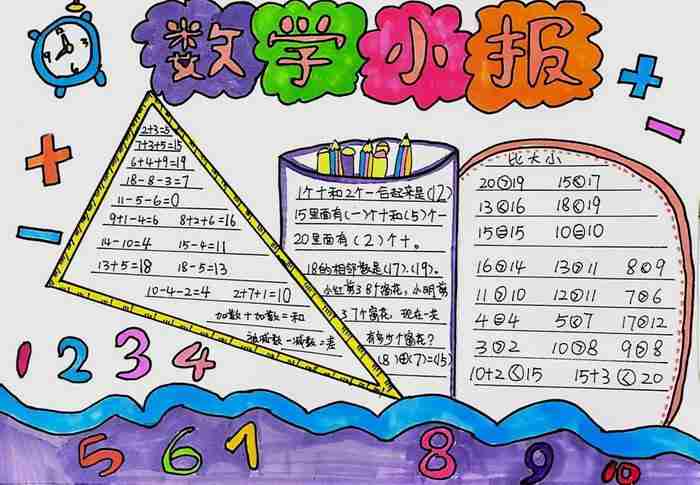 数学小报
2+3=5
7+3+5=15
6+4+9=19
18-8-3=7
11-5-6=0
9+1-4=6 8+2+6=16
14-10=4 15-4=11
13+5=18 18-5=13
10-4-2=4 2+7+1=10
加数+加数=和
被减数-减数=差
1个十和2个一合起来是(12)
15里面有(一)个十和(5)个一
20里面有(2)个十。
18的相邻数是(17).(19)。
小红剪了8个窗花,小明剪
了7个窗花 现在一共
有多少个窗花?
(8)⊕(7)=(15)
比大小
20>19 15<17
13<16 18<19
15=15 10=10
16>14 13>11 8<9
11>10 12>11 7>6
4=4 5<7 17>12
3>2 10>8 9>8
10+2<15 15+3<20
1 2 3 4
5 6 7 8 9 10